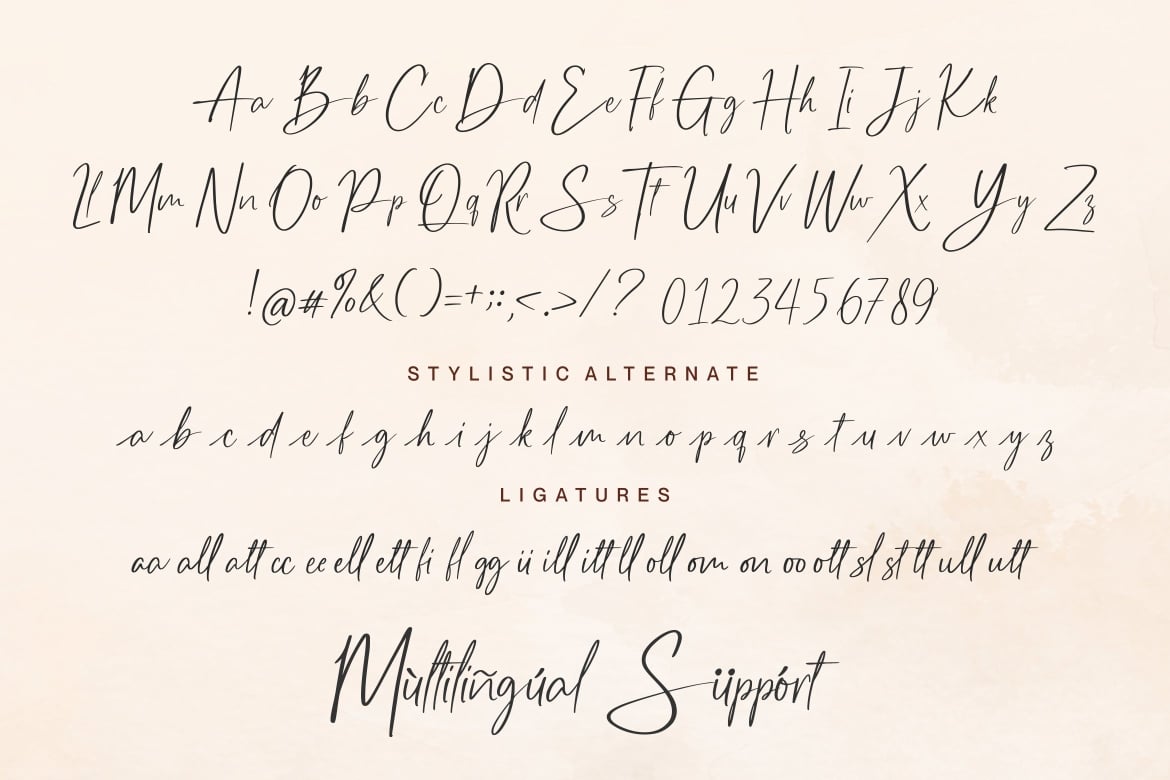 Aa Bb Cc Dd Ee Ff Gg Hh Ii Jj Kk
Ll Mm Nn Oo Pp Qq Rr Ss Tt Uu Vv Ww Xx Yy Zz
!@#%&()=+;:,<.>/? 0123456789
STYLISTIC ALTERNATE
a b c d e f g h i j k l m n o p q r s t u v w x y z
LIGATURES
aa all att cc ee ell ett fi fl gg ii ill itt ll oll om on oo ott sl st tt ull utt
Mùltiliñgúal Süppórt